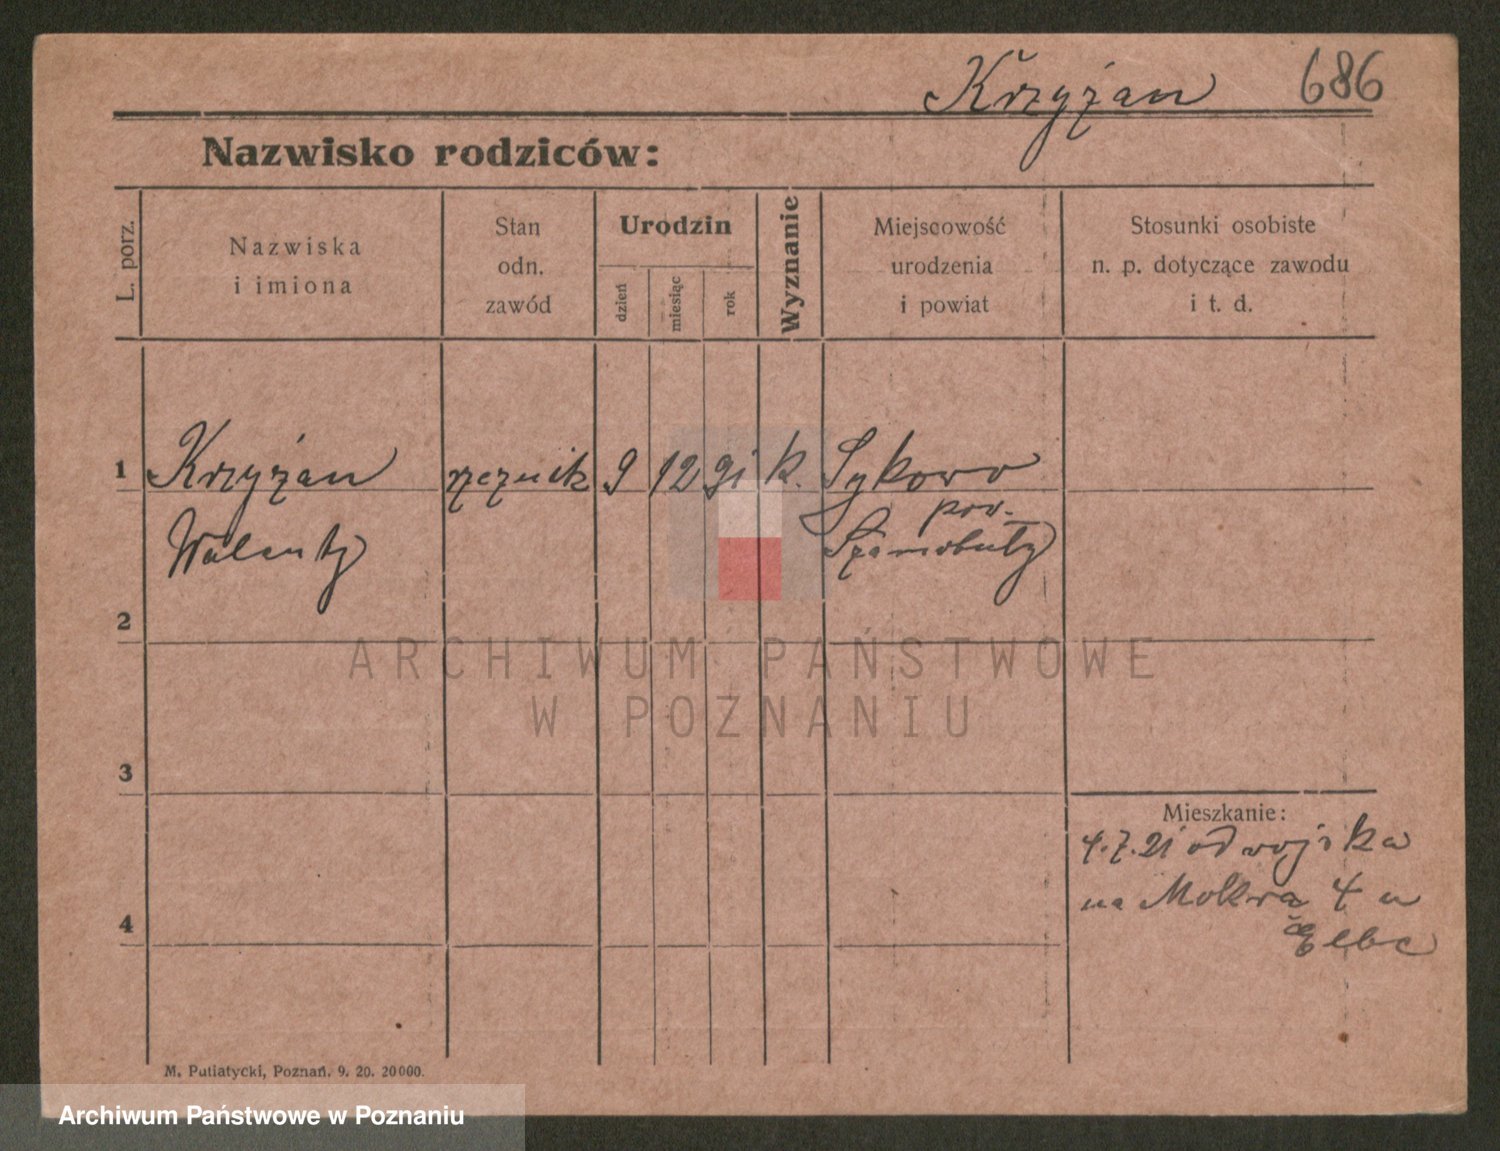 Krzyżan 686
Nazwisko rodziców:
L. porz.
Nazwiska
i imiona
Stan
odn.
zawód
Urodzin
dzień
miesiąc
rok
Wyznanie
Miejscowość
urodzenia
i powiat
Stosunki osobiste
n. p. dotyczące zawodu
i t. d.
1 Krzyżan rzeznik 9 12 91 k. Sykowo
pow.
Walenty Szamotuły
2
ARCHIWUM PAŃSTWOWE
W POZNANIU
3
Mieszkanie:
4.7.21 od wojska
na Mokra 4 u
4
M. Putiatycki, Poznań. 9. 20. 20000.
Archiwum Państwowe w Poznaniu